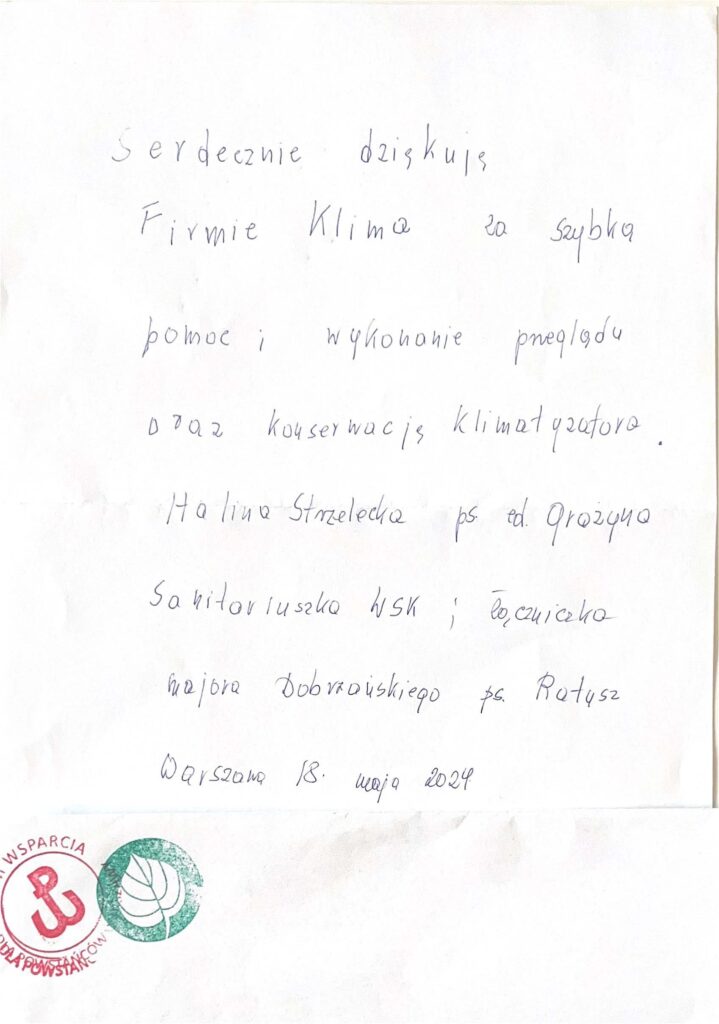 Serdecznie dziękuję
Firmie Klima za szybką
pomoc i wykonanie przeglądu
oraz konserwację klimatyzatora.
Halina Strzelecka ps. Grażyna
Sanitariuszka WSK i łączniczka
majora Dobrzańskiego ps. Ratusz
Warszawa 18. maja 2024
WSPARCIA
DLA POWSTAŃCÓW